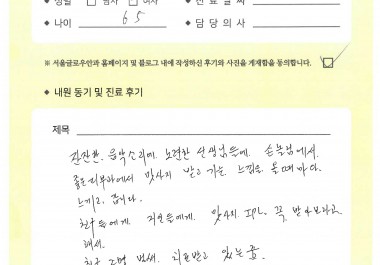 ◆ 성별 □ 남자 □ 여자 ◆ 진료날짜
◆ 나이 65 ◆ 담당의사
※ 서울글로우안과 홈페이지 및 블로그 내에 작성하신 후기와 사진을 게재함을 동의합니다.
◆ 내원 동기 및 진료 후기
제목
잔잔한 음악소리에 노련한 선생님들에 손놀림에서
좋은 피부과에서 맛사지 받고 가는 느낌은 올때마다
느끼고 갑니다.
친구들에게 지인들에게 맛사지 IPL 꼭 받아보라고
해서.
친구 2명 벌써 치료받고 있는중